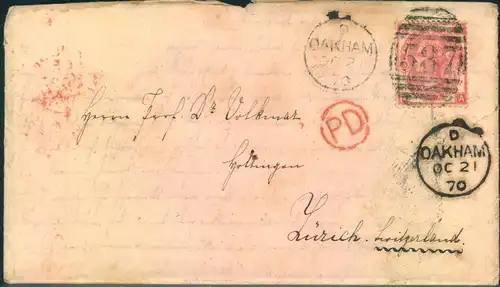 D
OAKHAM
OC 21
70
587
A
Herrn Prof. Dr Volkmar,
PD
Hottingen
D
OAKHAM
OC 21
70
Zürich. Switzerland.